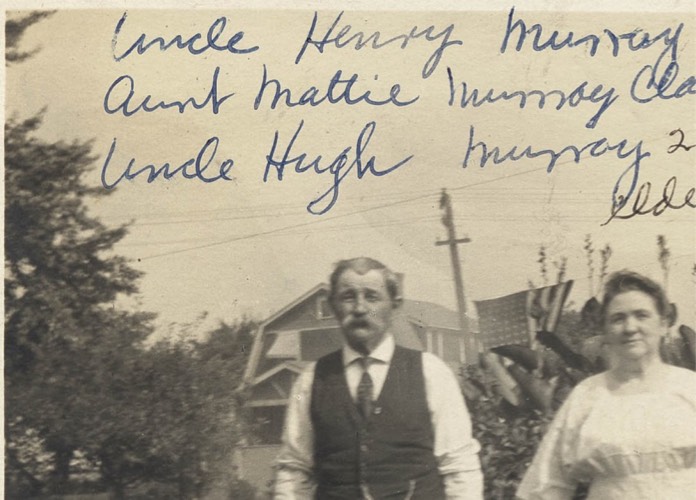 Uncle Henry Murray
Aunt Mattie Murray Cla
Uncle Hugh Murray 2
elde